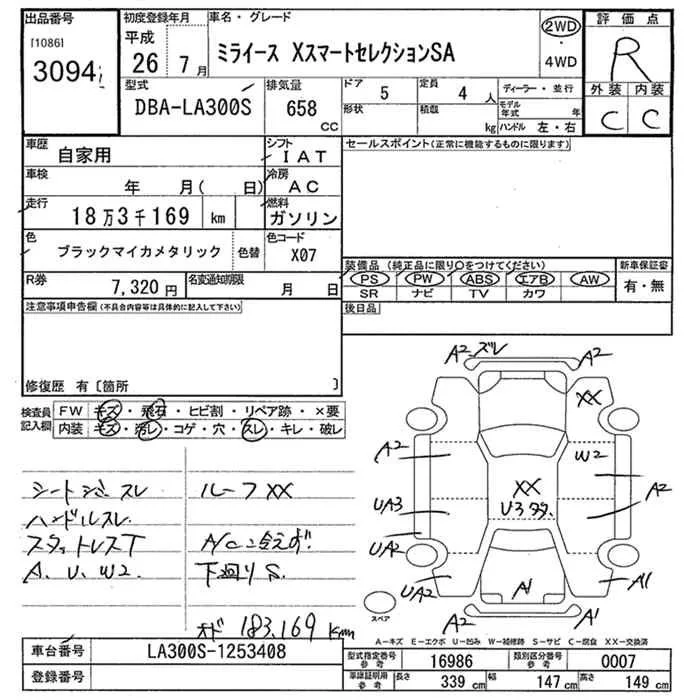 出品番号 初度登録年月 車名・グレード 評価点
[1086] 平成 ミライース XスマートセレクションSA 2WD ・ 4WD R
3094 26年 7月
型式 排気量 ドア 5 定員 4人 ディーラー・並行 外装 内装
DBA-LA300S 658 CC 形状 積載 kg モデル年式 年 ハンドル 左・右 C C
車歴 自家用 シフト IAT セールスポイント(正常に機能するものに限ります)
車検 年 月( 日) 冷房 AC
走行 18万3千169 km 燃料 ガソリン
色 ブラックマイカメタリック 色替 色コード X07
装備品(純正品に限り○をつけてください) 新車保証書
R券 7,320円 名変通知期限 月 日 PS PW ABS エアB AW 有・無
SR ナビ TV カワ
注意事項申告欄(不具合内容等は具体的に記入して下さい) 後日品
修復歴 有〔箇所 〕
検査員記入欄 FW キズ・飛石・ヒビ割・リペア跡・×要
内装 キズ・汚レ・コゲ・穴・スレ・キレ・破レ
ハンドルスレ
スタットレスT
A、U、W2
ルーフXX
A/C冷えず
下廻りS
オド 183,169km
A2 ズレ A2
XX
A2 W2
XX A2
UA3 U3
UA2
UA2 A1 A1
A2 A1
スペア
A-キズ E-エクボ U-凹み W-補修跡 S-サビ C-腐食 XX-交換済
車台番号 LA300S-1253408 型式指定番号 参考 16986 類別区分番号 参考 0007
登録番号 車庫証明用 参考 長さ 339 cm 幅 147 cm 高さ 149 cm